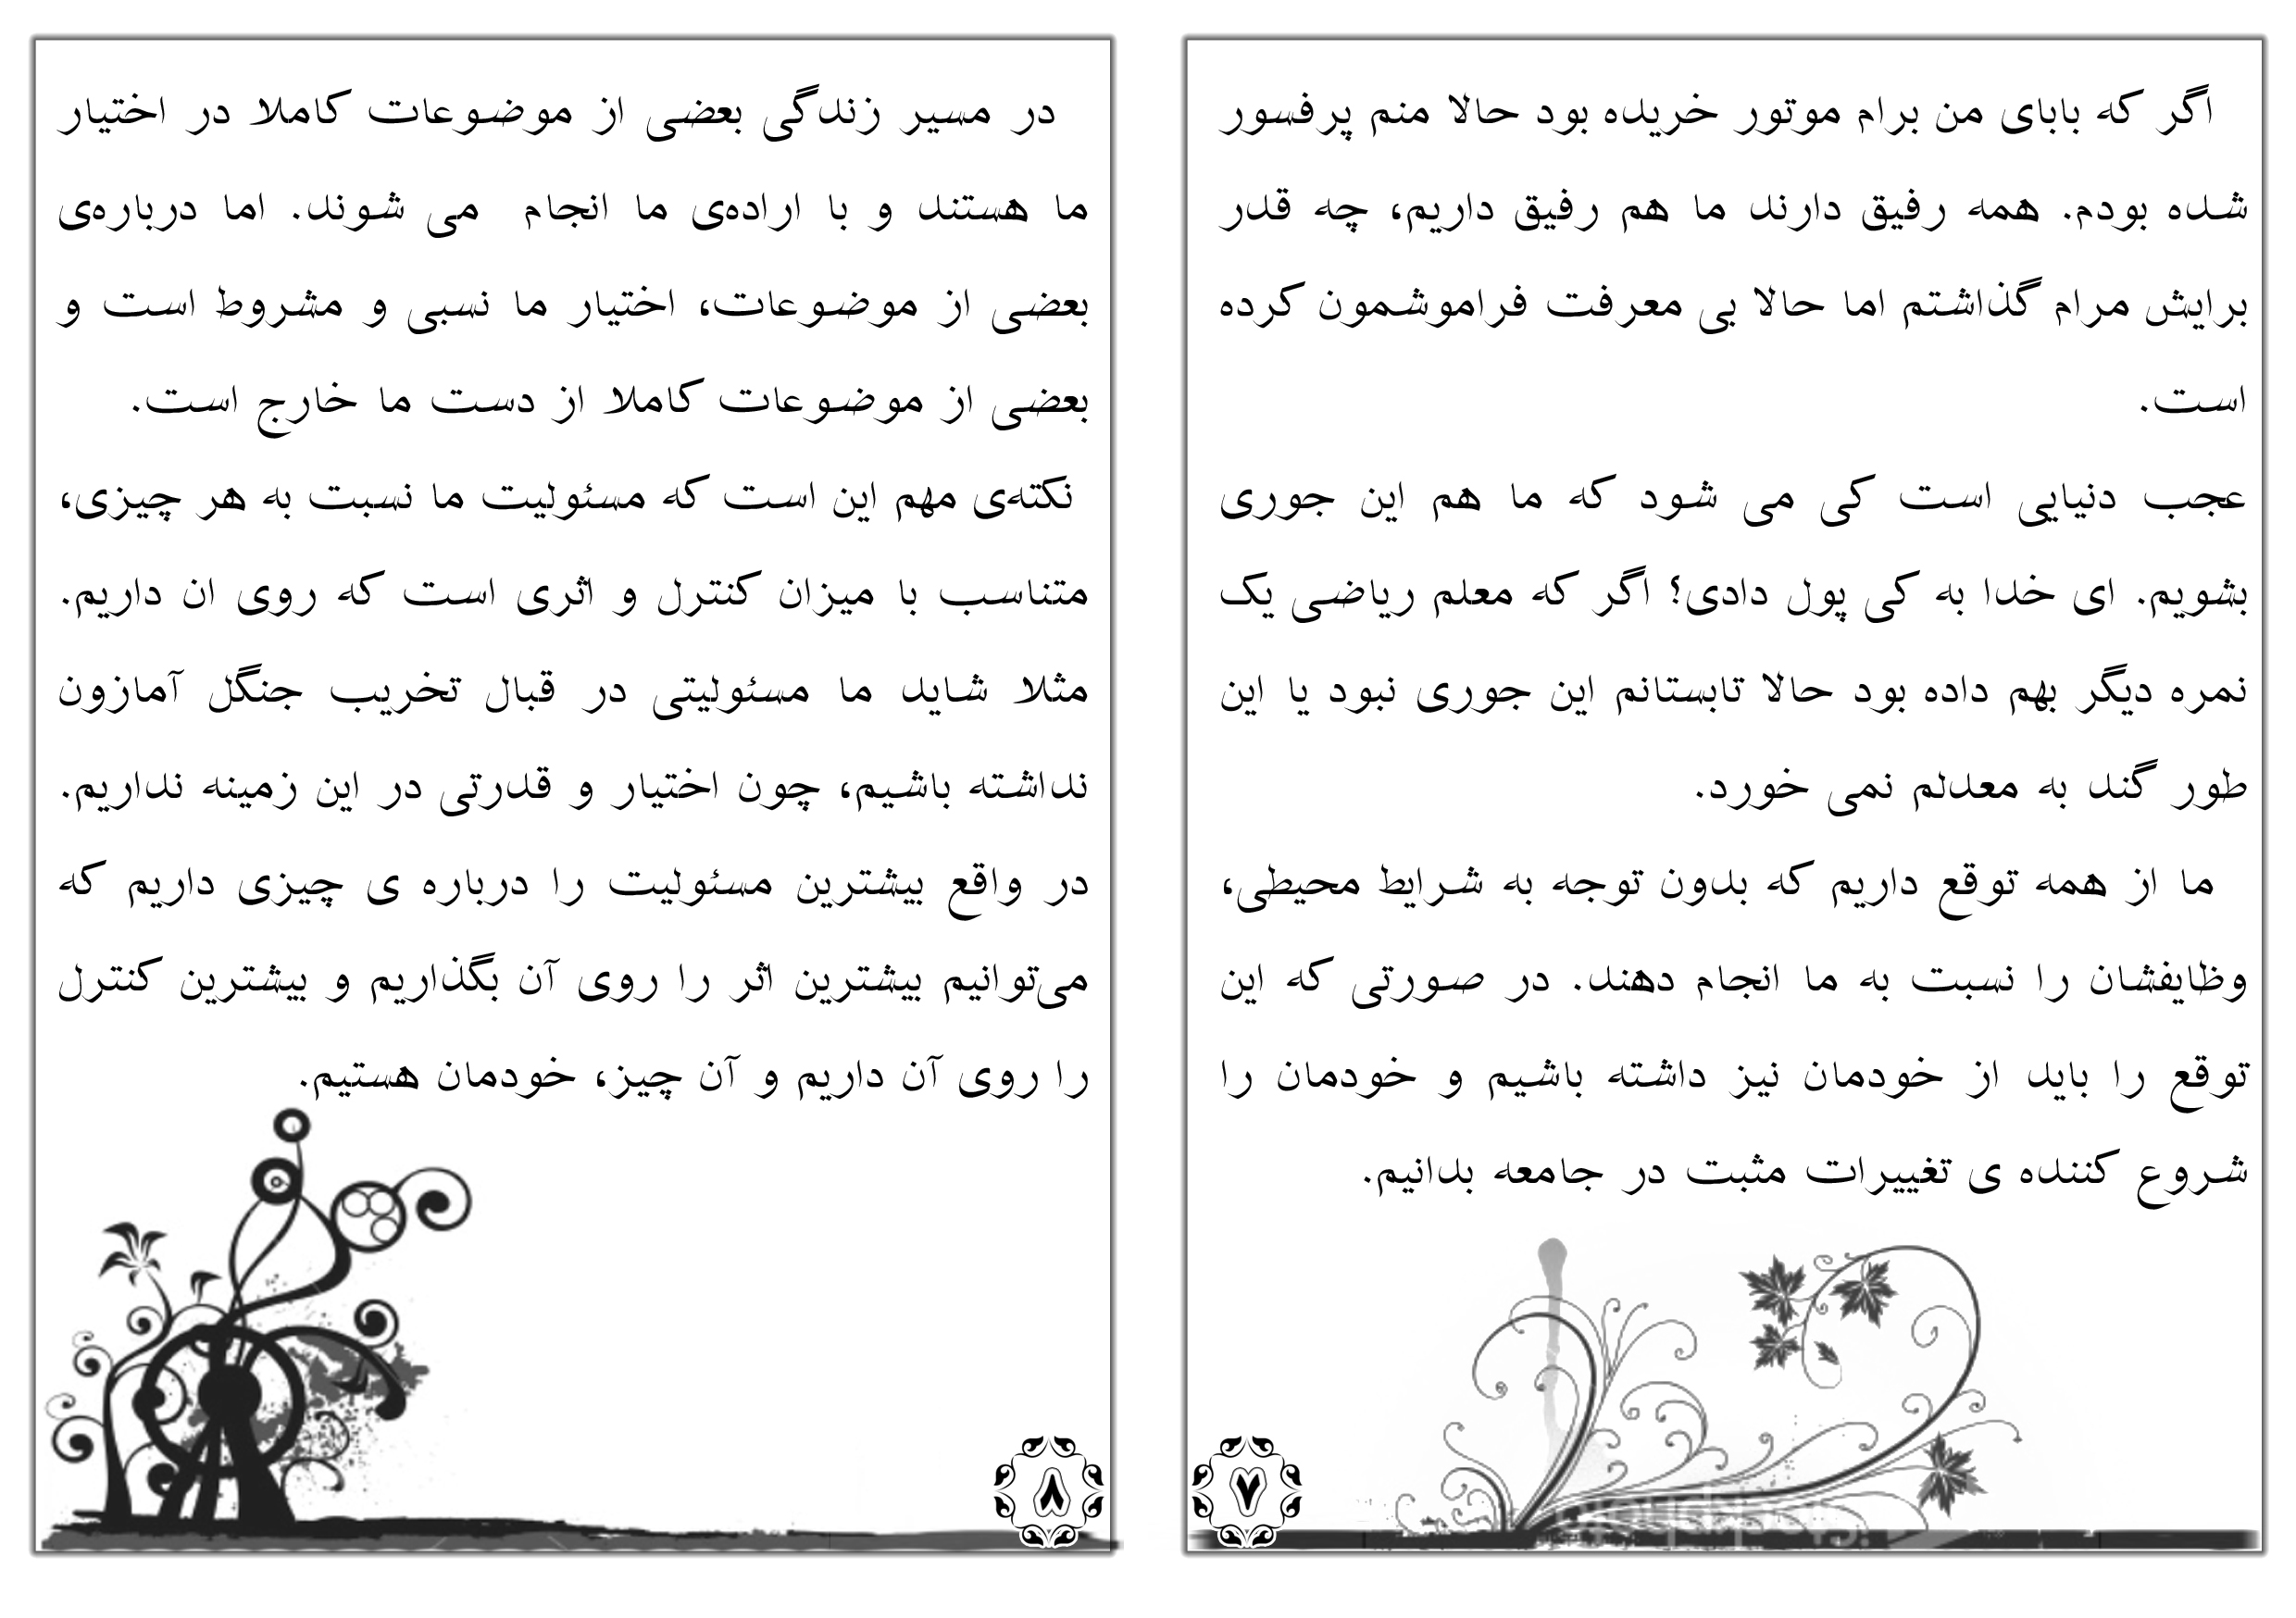 اگر که بابای من برام موتور خریده بود حالا منم پرفسور
شده بودم. همه رفیق دارند ما هم رفیق داریم، چه قدر
برایش مرام گذاشتم اما حالا بی معرفت فراموشمون کرده
است.
عجب دنیایی است کی می شود که ما هم این جوری
بشویم. ای خدا به کی پول دادی؟ اگر که معلم ریاضی یک
نمره دیگر بهم داده بود حالا تابستانم این جوری نبود یا این
طور گند به معدلم نمی خورد.
ما از همه توقع داریم که بدون توجه به شرایط محیطی،
وظایفشان را نسبت به ما انجام دهند. در صورتی که این
توقع را باید از خودمان نیز داشته باشیم و خودمان را
شروع کننده ی تغییرات مثبت در جامعه بدانیم.
۷
در مسیر زندگی بعضی از موضوعات کاملا در اختیار
ما هستند و با اراده‌ی ما انجام می شوند. اما درباره‌ی
بعضی از موضوعات، اختیار ما نسبی و مشروط است و
بعضی از موضوعات کاملا از دست ما خارج است.
نکته‌ی مهم این است که مسئولیت ما نسبت به هر چیزی،
متناسب با میزان کنترل و اثری است که روی ان داریم.
مثلا شاید ما مسئولیتی در قبال تخریب جنگل آمازون
نداشته باشیم، چون اختیار و قدرتی در این زمینه نداریم.
در واقع بیشترین مسئولیت را درباره ی چیزی داریم که
می‌توانیم بیشترین اثر را روی آن بگذاریم و بیشترین کنترل
را روی آن داریم و آن چیز، خودمان هستیم.
۸